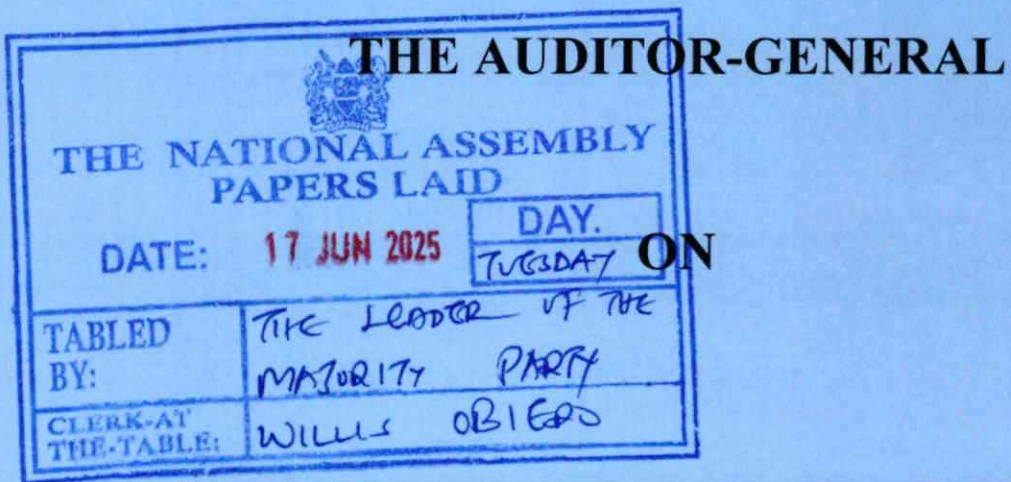 THE AUDITOR-GENERAL
THE NATIONAL ASSEMBLY
PAPERS LAID
DATE: 17 JUN 2025
DAY.
TUESDAY
ON
TABLED BY:
THE LEADER OF THE
MAJORITY PARTY
CLERK-AT
THE-TABLE:
WILLIS OBIERO